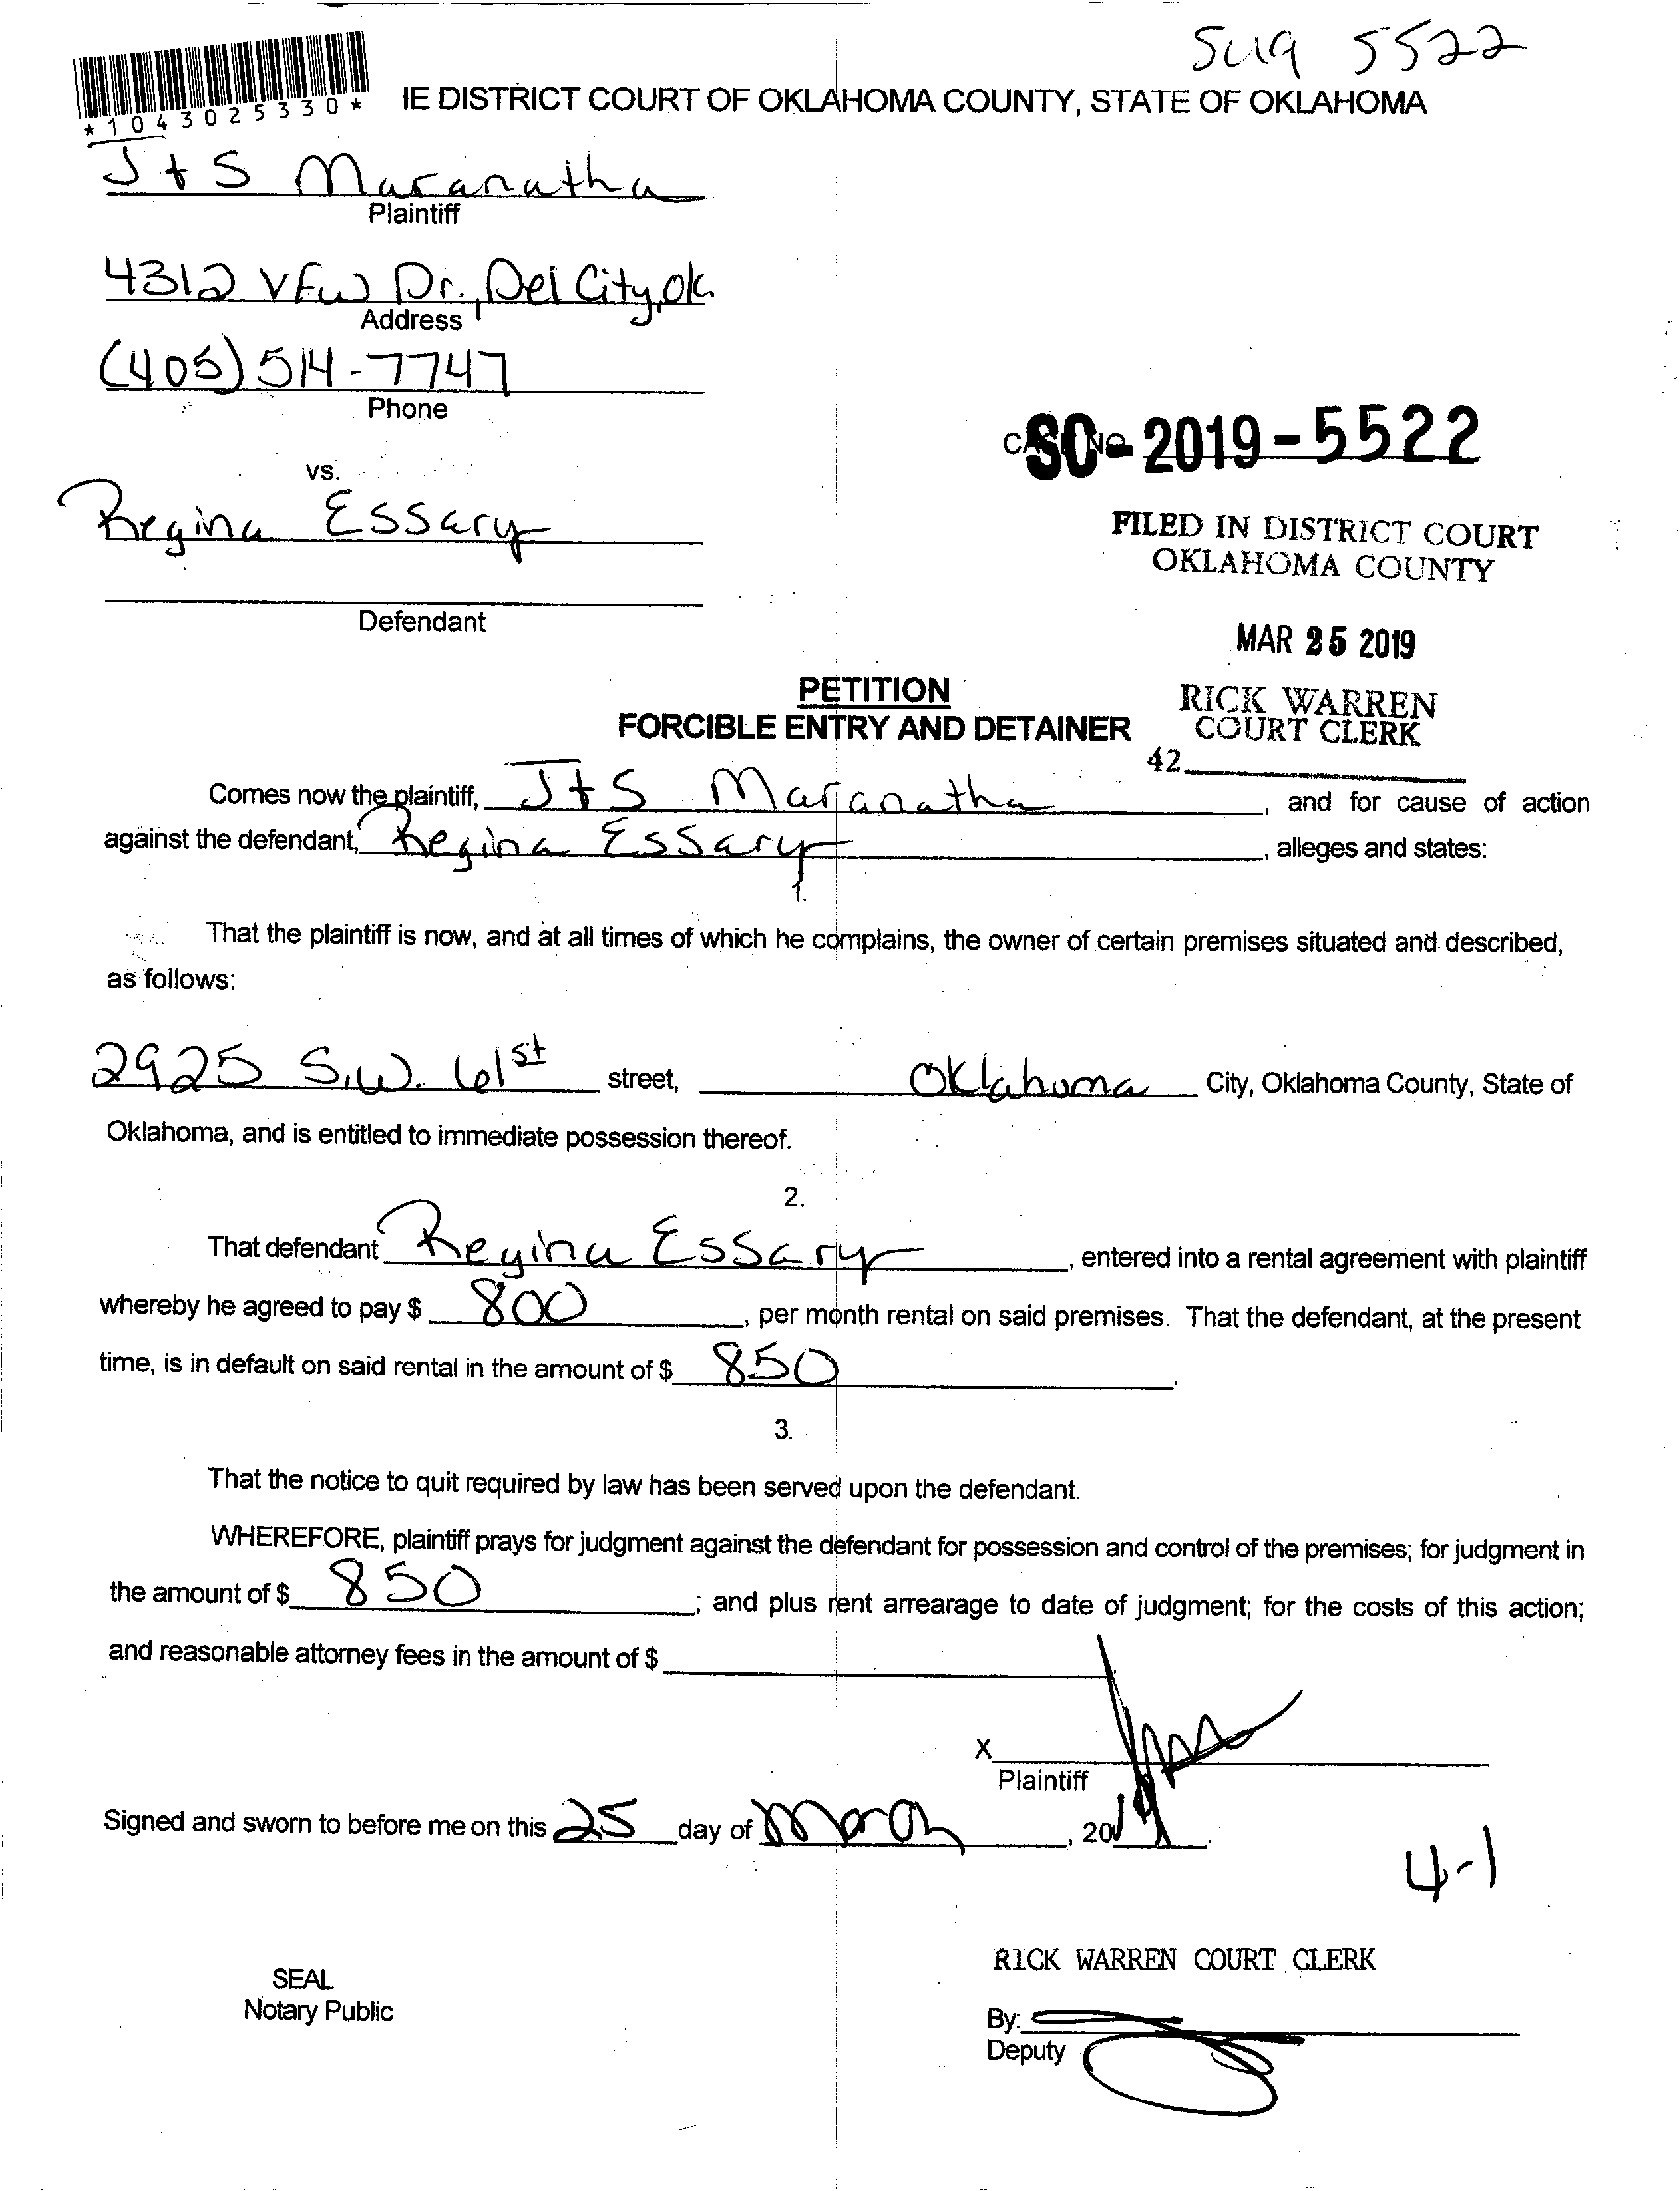 SC19 5522
*1043025330*
IE DISTRICT COURT OF OKLAHOMA COUNTY, STATE OF OKLAHOMA
J + S Maranatha
Plaintiff
4312 VFW Dr., Del City, ok.
Address
(405) 514-7747
Phone
SC-2019-5522
vs.
Regina Essary
FILED IN DISTRICT COURT
OKLAHOMA COUNTY
Defendant
MAR 25 2019
PETITION
FORCIBLE ENTRY AND DETAINER
RICK WARREN
COURT CLERK
42
Comes now the plaintiff, J + S Maranatha, and for cause of action
against the defendant, Regina Essary, alleges and states:
1.
That the plaintiff is now, and at all times of which he complains, the owner of certain premises situated and described,
as follows:
2925 S.W. 61st street, Oklahoma City, Oklahoma County, State of
Oklahoma, and is entitled to immediate possession thereof.
2.
That defendant Regina Essary, entered into a rental agreement with plaintiff
whereby he agreed to pay $ 800, per month rental on said premises. That the defendant, at the present
time, is in default on said rental in the amount of $ 850.
3.
That the notice to quit required by law has been served upon the defendant.
WHEREFORE, plaintiff prays for judgment against the defendant for possession and control of the premises; for judgment in
the amount of $ 850; and plus rent arrearage to date of judgment; for the costs of this action;
and reasonable attorney fees in the amount of $
X
Plaintiff
Signed and sworn to before me on this 25 day of March, 2019.
4-1
RICK WARREN COURT CLERK
SEAL
Notary Public
By:
Deputy